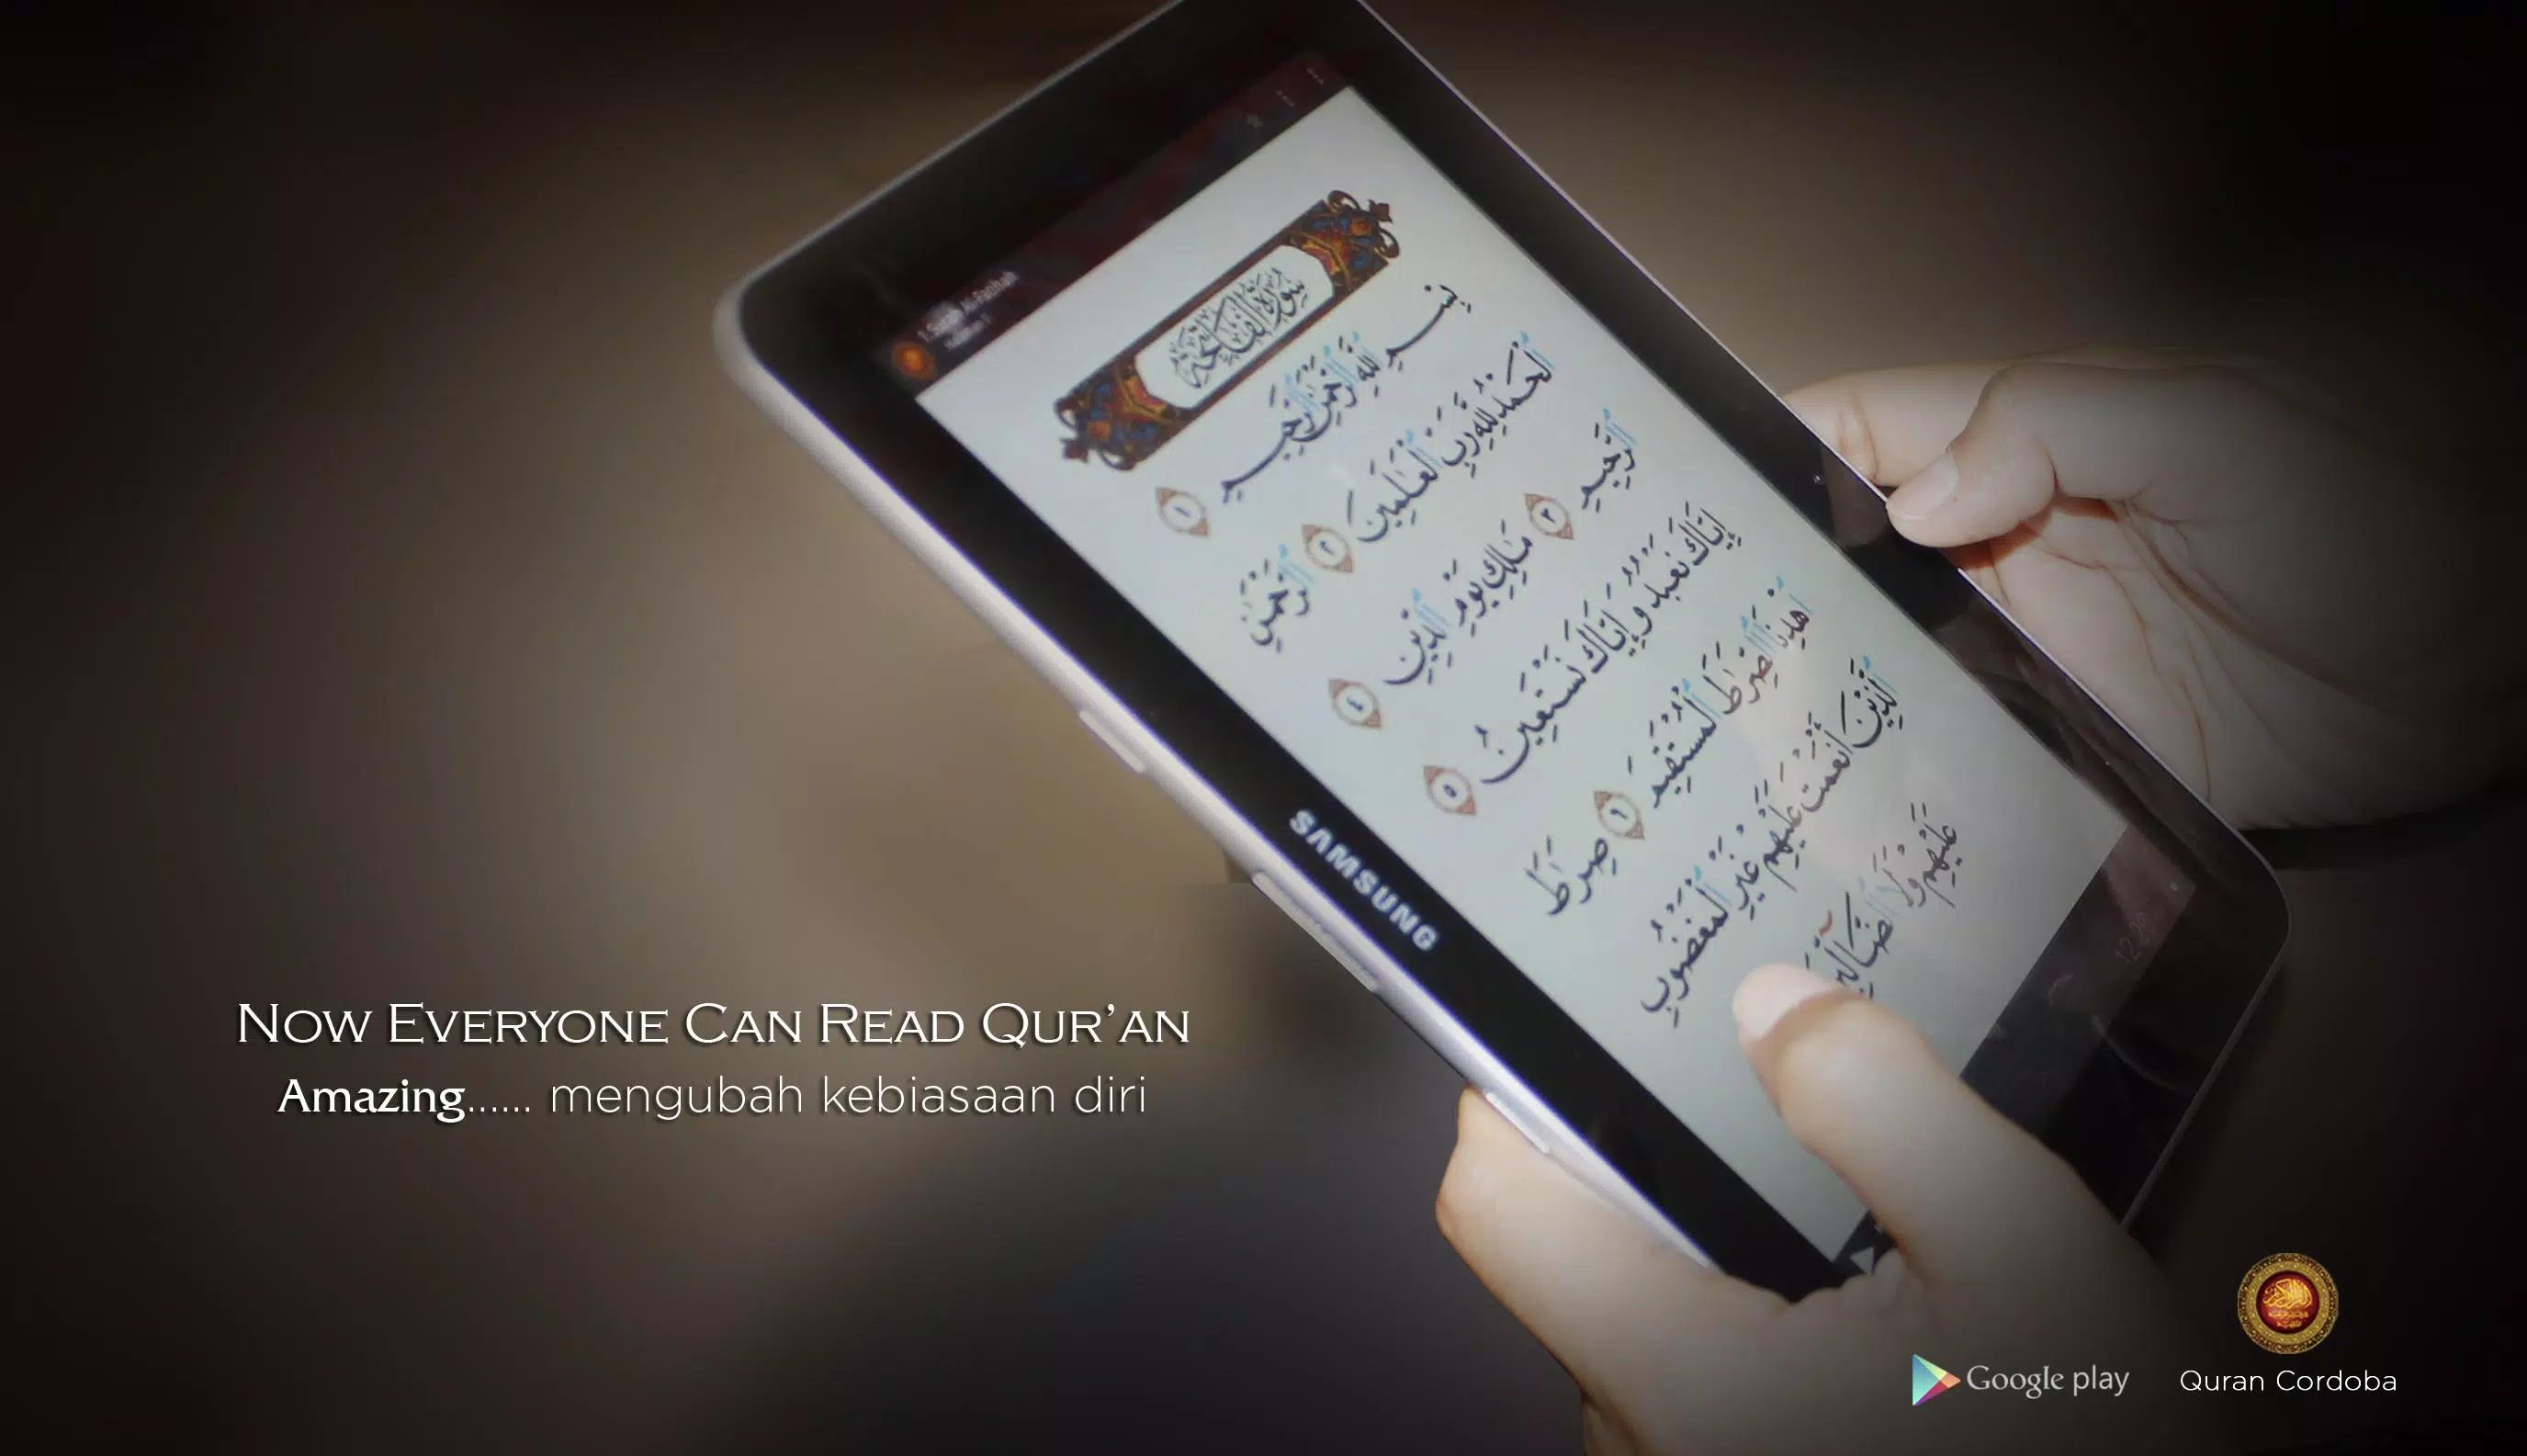 1. Surah Al-Fatihah
سورة الفاتحة
بِسْمِ ٱللَّهِ ٱلرَّحْمَٰنِ ٱلرَّحِيمِ ١
ٱلْحَمْدُ لِلَّهِ رَبِّ ٱلْعَٰلَمِينَ ٢ ٱلرَّحْمَٰنِ
ٱلرَّحِيمِ ٣ مَٰلِكِ يَوْمِ ٱلدِّينِ ٤
إِيَّاكَ نَعْبُدُ وَإِيَّاكَ نَسْتَعِينُ ٥
ٱهْدِنَا ٱلصِّرَٰطَ ٱلْمُسْتَقِيمَ ٦ صِرَٰطَ
ٱلَّذِينَ أَنْعَمْتَ عَلَيْهِمْ غَيْرِ ٱلْمَغْضُوبِ
عَلَيْهِمْ وَلَا ٱلضَّآلِّينَ
SAMSUNG
12:28
NOW EVERYONE CAN READ QUR'AN
Amazing...... mengubah kebiasaan diri
Google play
Quran Cordoba